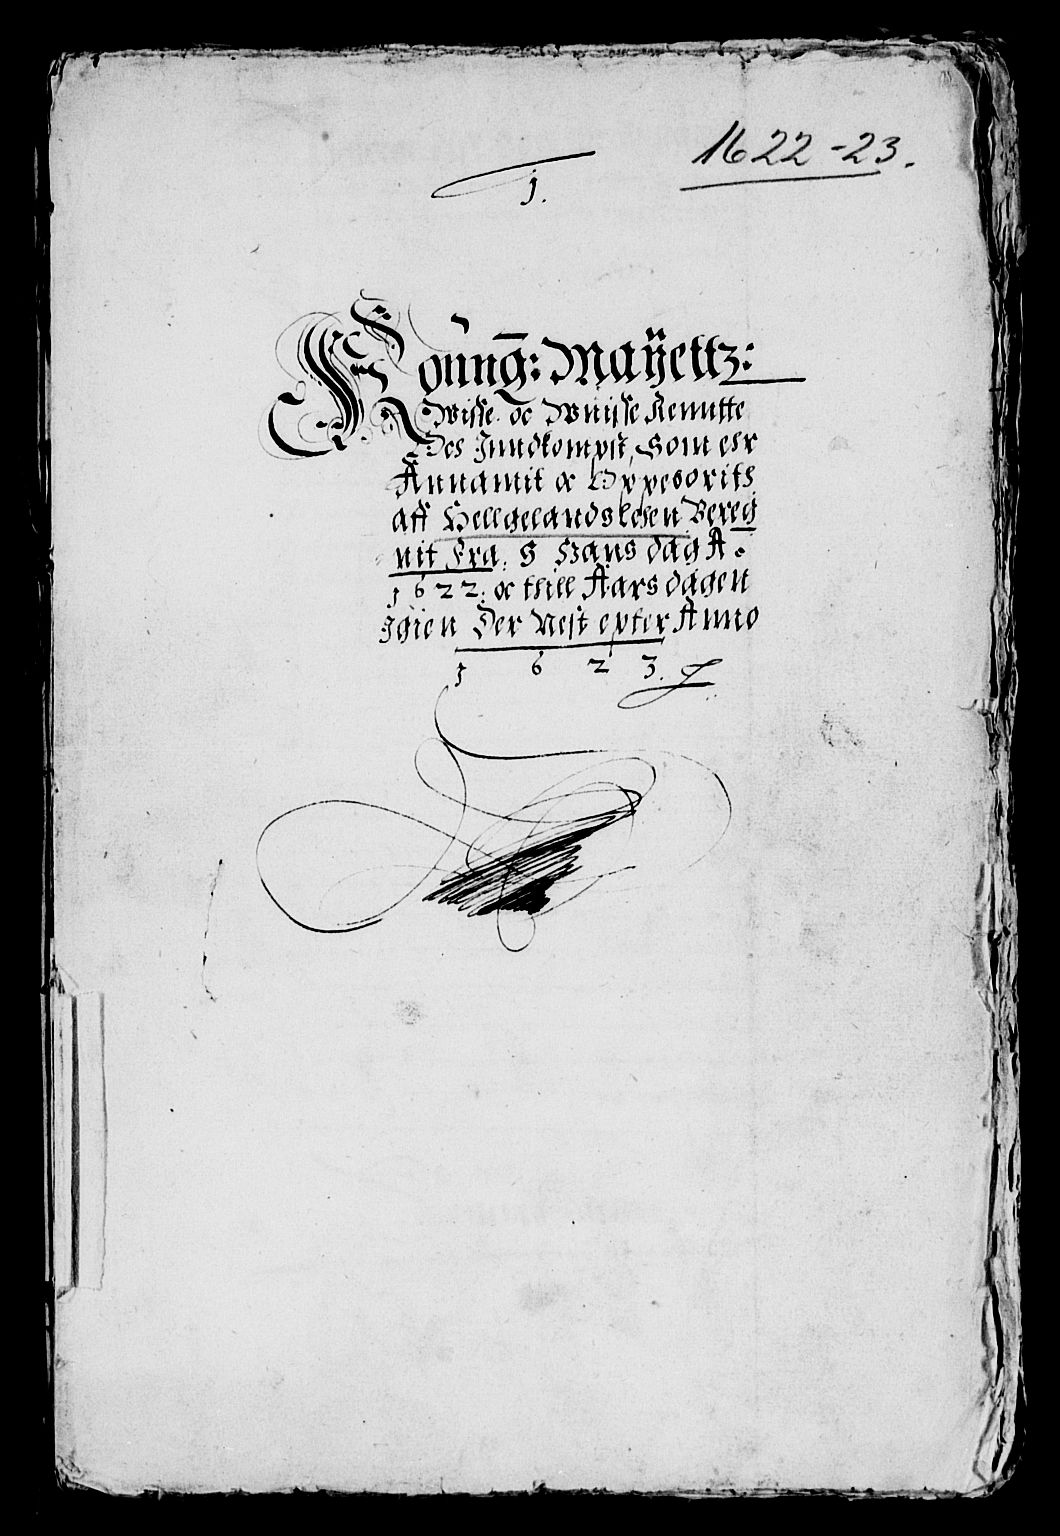 1622-23.
1.
Koüng: Maÿettz:
Wisse oc Wuisse Rennte
Oes Inndkompst, Som ehr
Annamit oc Oppeborits
aff Hellgelandslehen Bereg
nit Fra. S Hans dag A°
1622. oc thill Aars dagen
Igien Der Nest epter Anno
1 6 2 3.